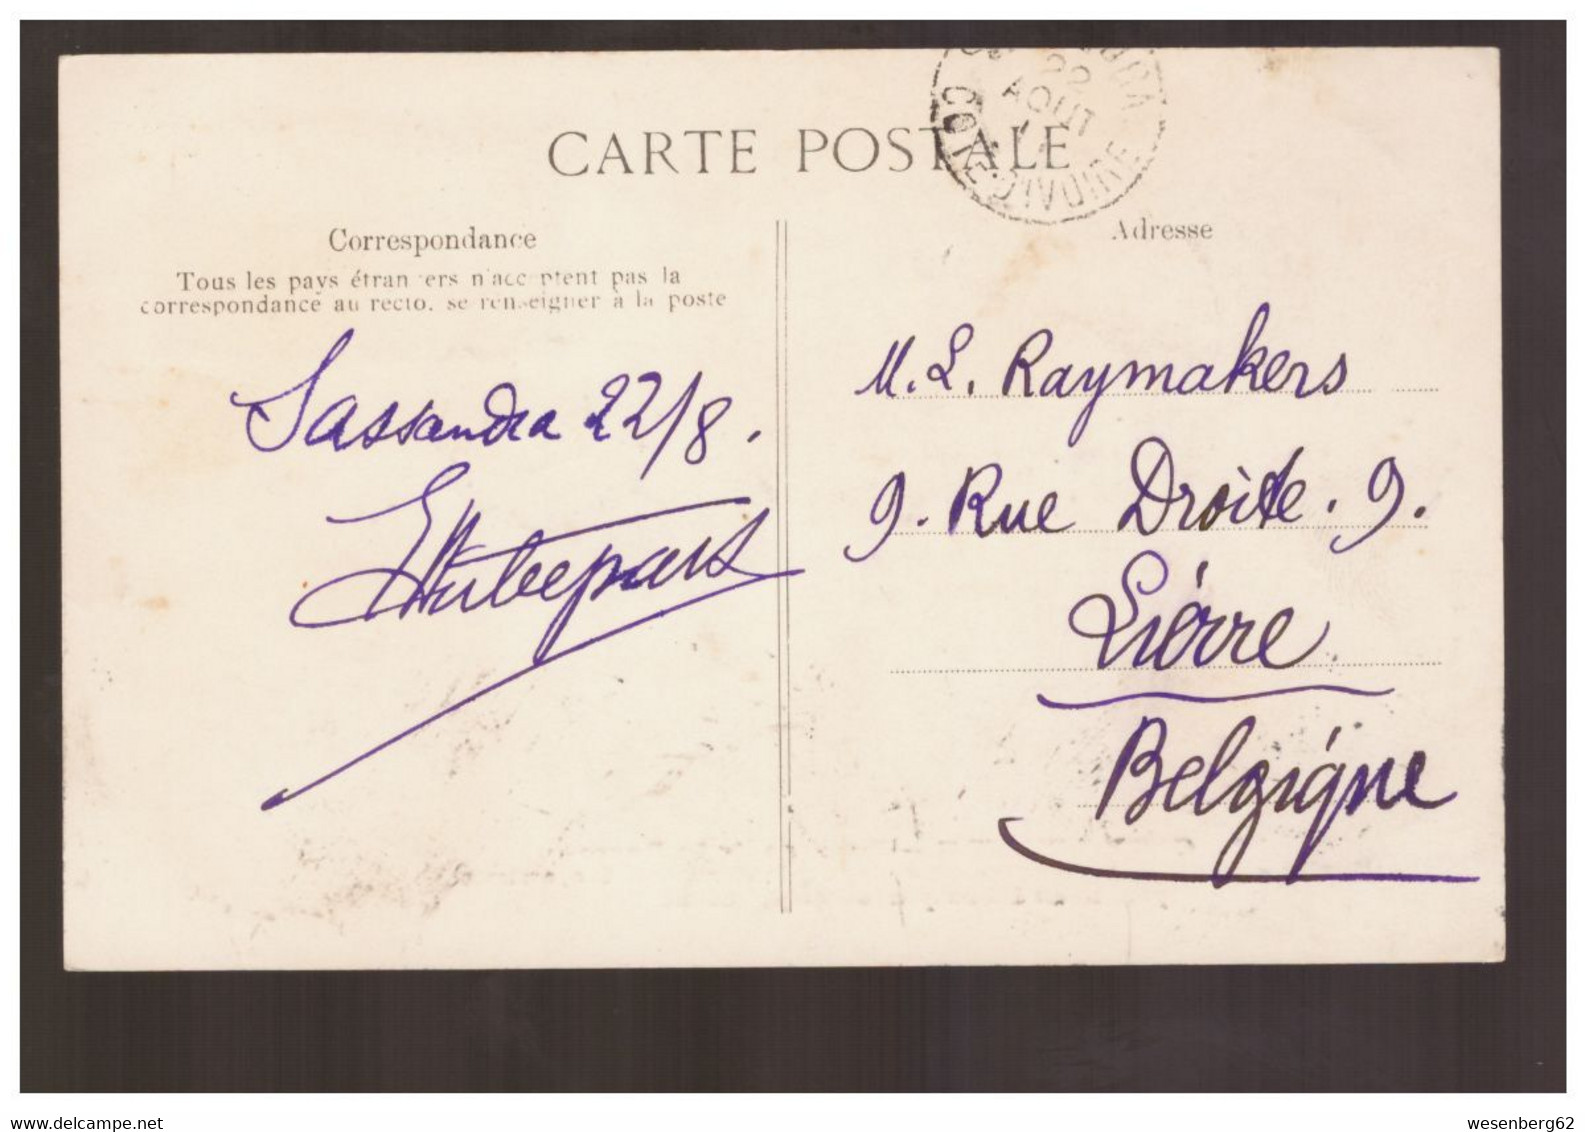 CARTE POSTALE
22
AOUT
COTE-D'IVOIRE
Correspondance
Tous les pays étrangers n'acceptent pas la
correspondance au recto. se renseigner à la poste
Sassandra 22/8.
Adresse
M. L. Raymakers
9. Rue Droite. 9.
Lierre
Belgique
wesenberg62
www.delcampe.net